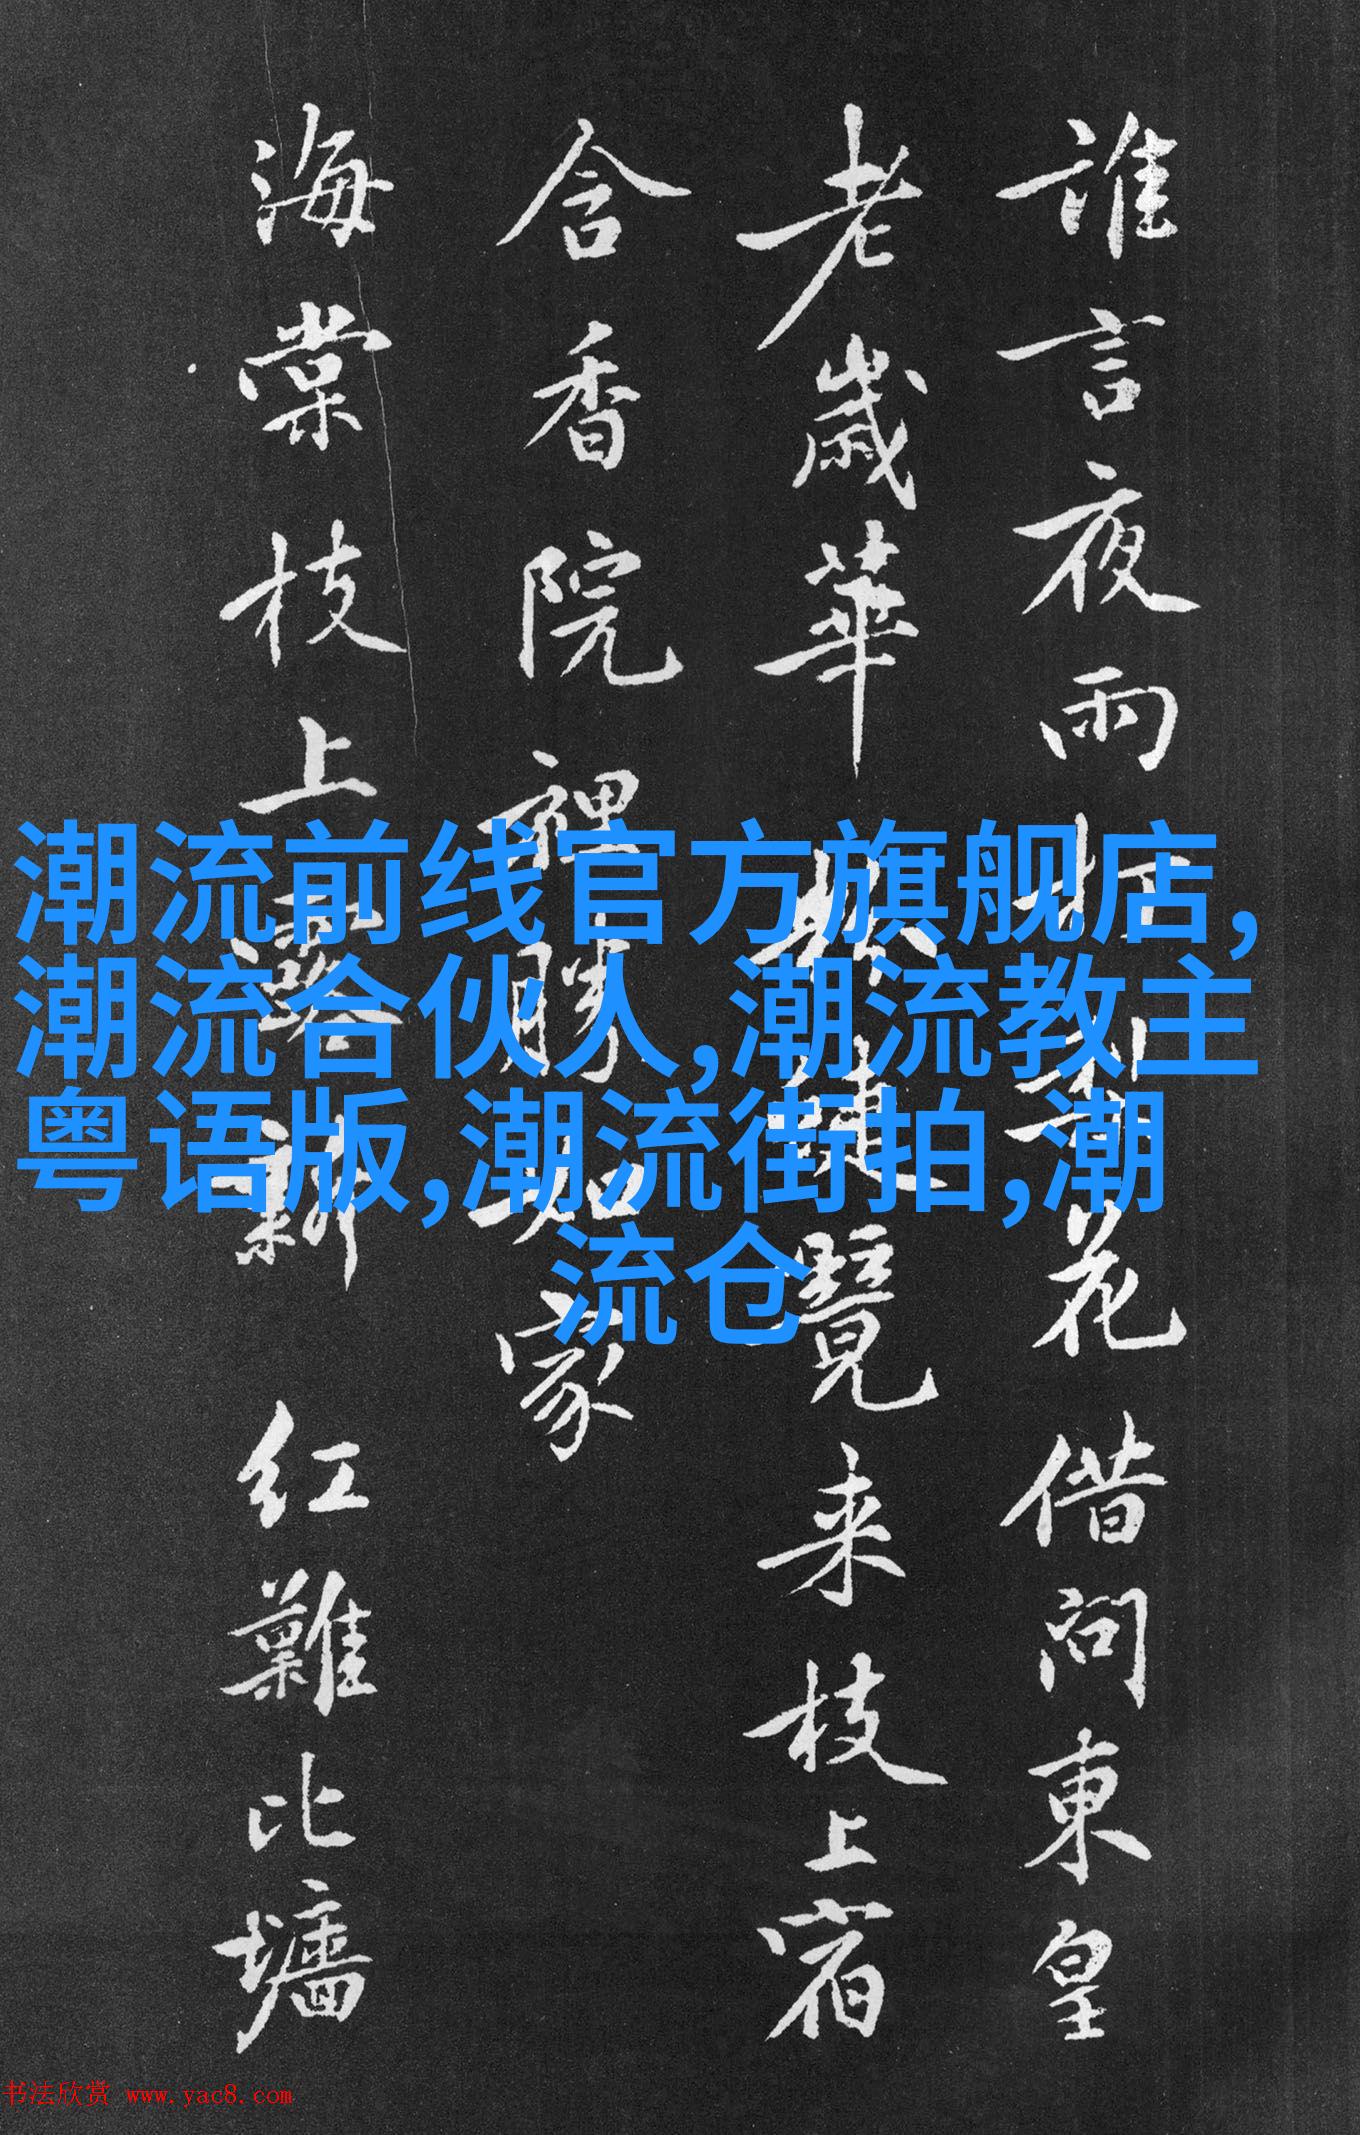 誰言夜雨打梨花借問東皇
老歲華来枝上宿
含香院裡勝如家
海棠枝上露新红難比墻
潮流前线官方旗舰店,
潮流合伙人,潮流教主
粤语版,潮流街拍,潮
流仓
书法欣赏 www.yac8.com